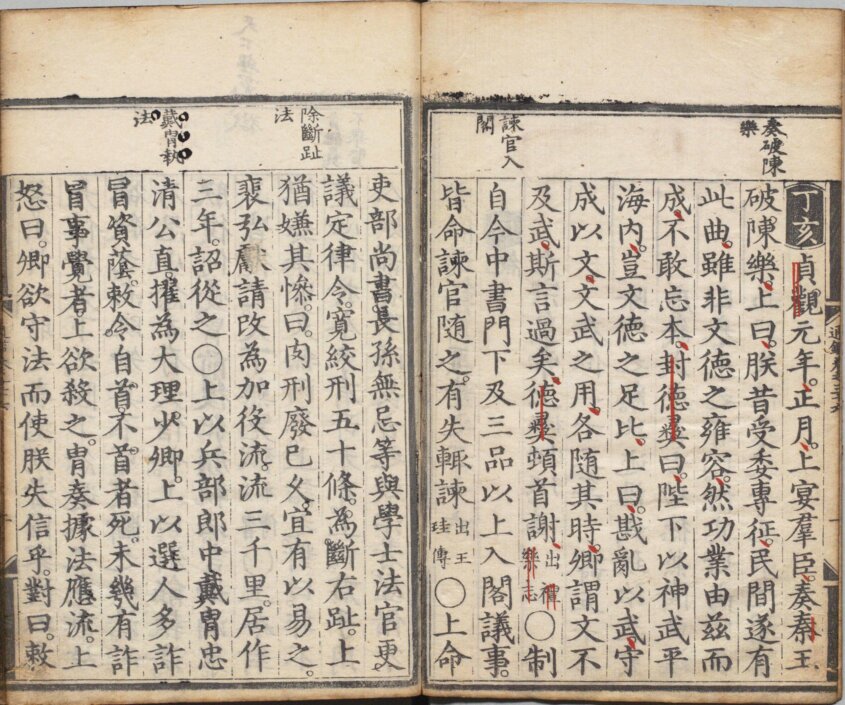 奏破陳
樂
諫官入
閣
丁亥貞觀元年。正月。上宴羣臣。奏秦王
破陳樂。上曰。朕昔受委專征。民間遂有
此曲。雖非文德之雍容。然功業由兹而
成。不敢忘本。封德彝曰。陛下以神武平
海内。豈文德之足比。上曰。戡亂以武。守
成以文。文武之用。各随其時。卿謂文不
及武。斯言過矣。德彝頓首謝。出禮樂志〇制
自今中書門下及三品以上入閣議事。
皆命諫官随之。有失輒諫出王珪傳〇上命
除斷趾
法
戴冑執
法
吏部尚書。長孫無忌等與學士法官更
議定律令。寬絞刑五十條。為斷右趾。上
猶嫌其慘。曰。肉刑廢已久。宜有以易之。
裴弘獻請改為加役流。流三千里。居作
三年。詔從之〇上以兵部郎中戴冑忠
清公直。擢為大理少卿。上以選人多詐
冒資蔭。敕令自首。不首者死。未幾有詐
冒事覺者上欲殺之。冑奏據法應流。上
怒曰。卿欲守法而使朕失信乎。對曰。敕